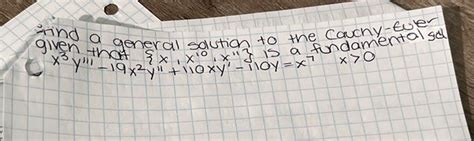 Find a general solution to the Cauchy-Euler
given that {x, x¹⁰, x¹¹} is a fundamental set
x³y''' - 19x²y'' + 110xy' - 110y = x⁷ x>0